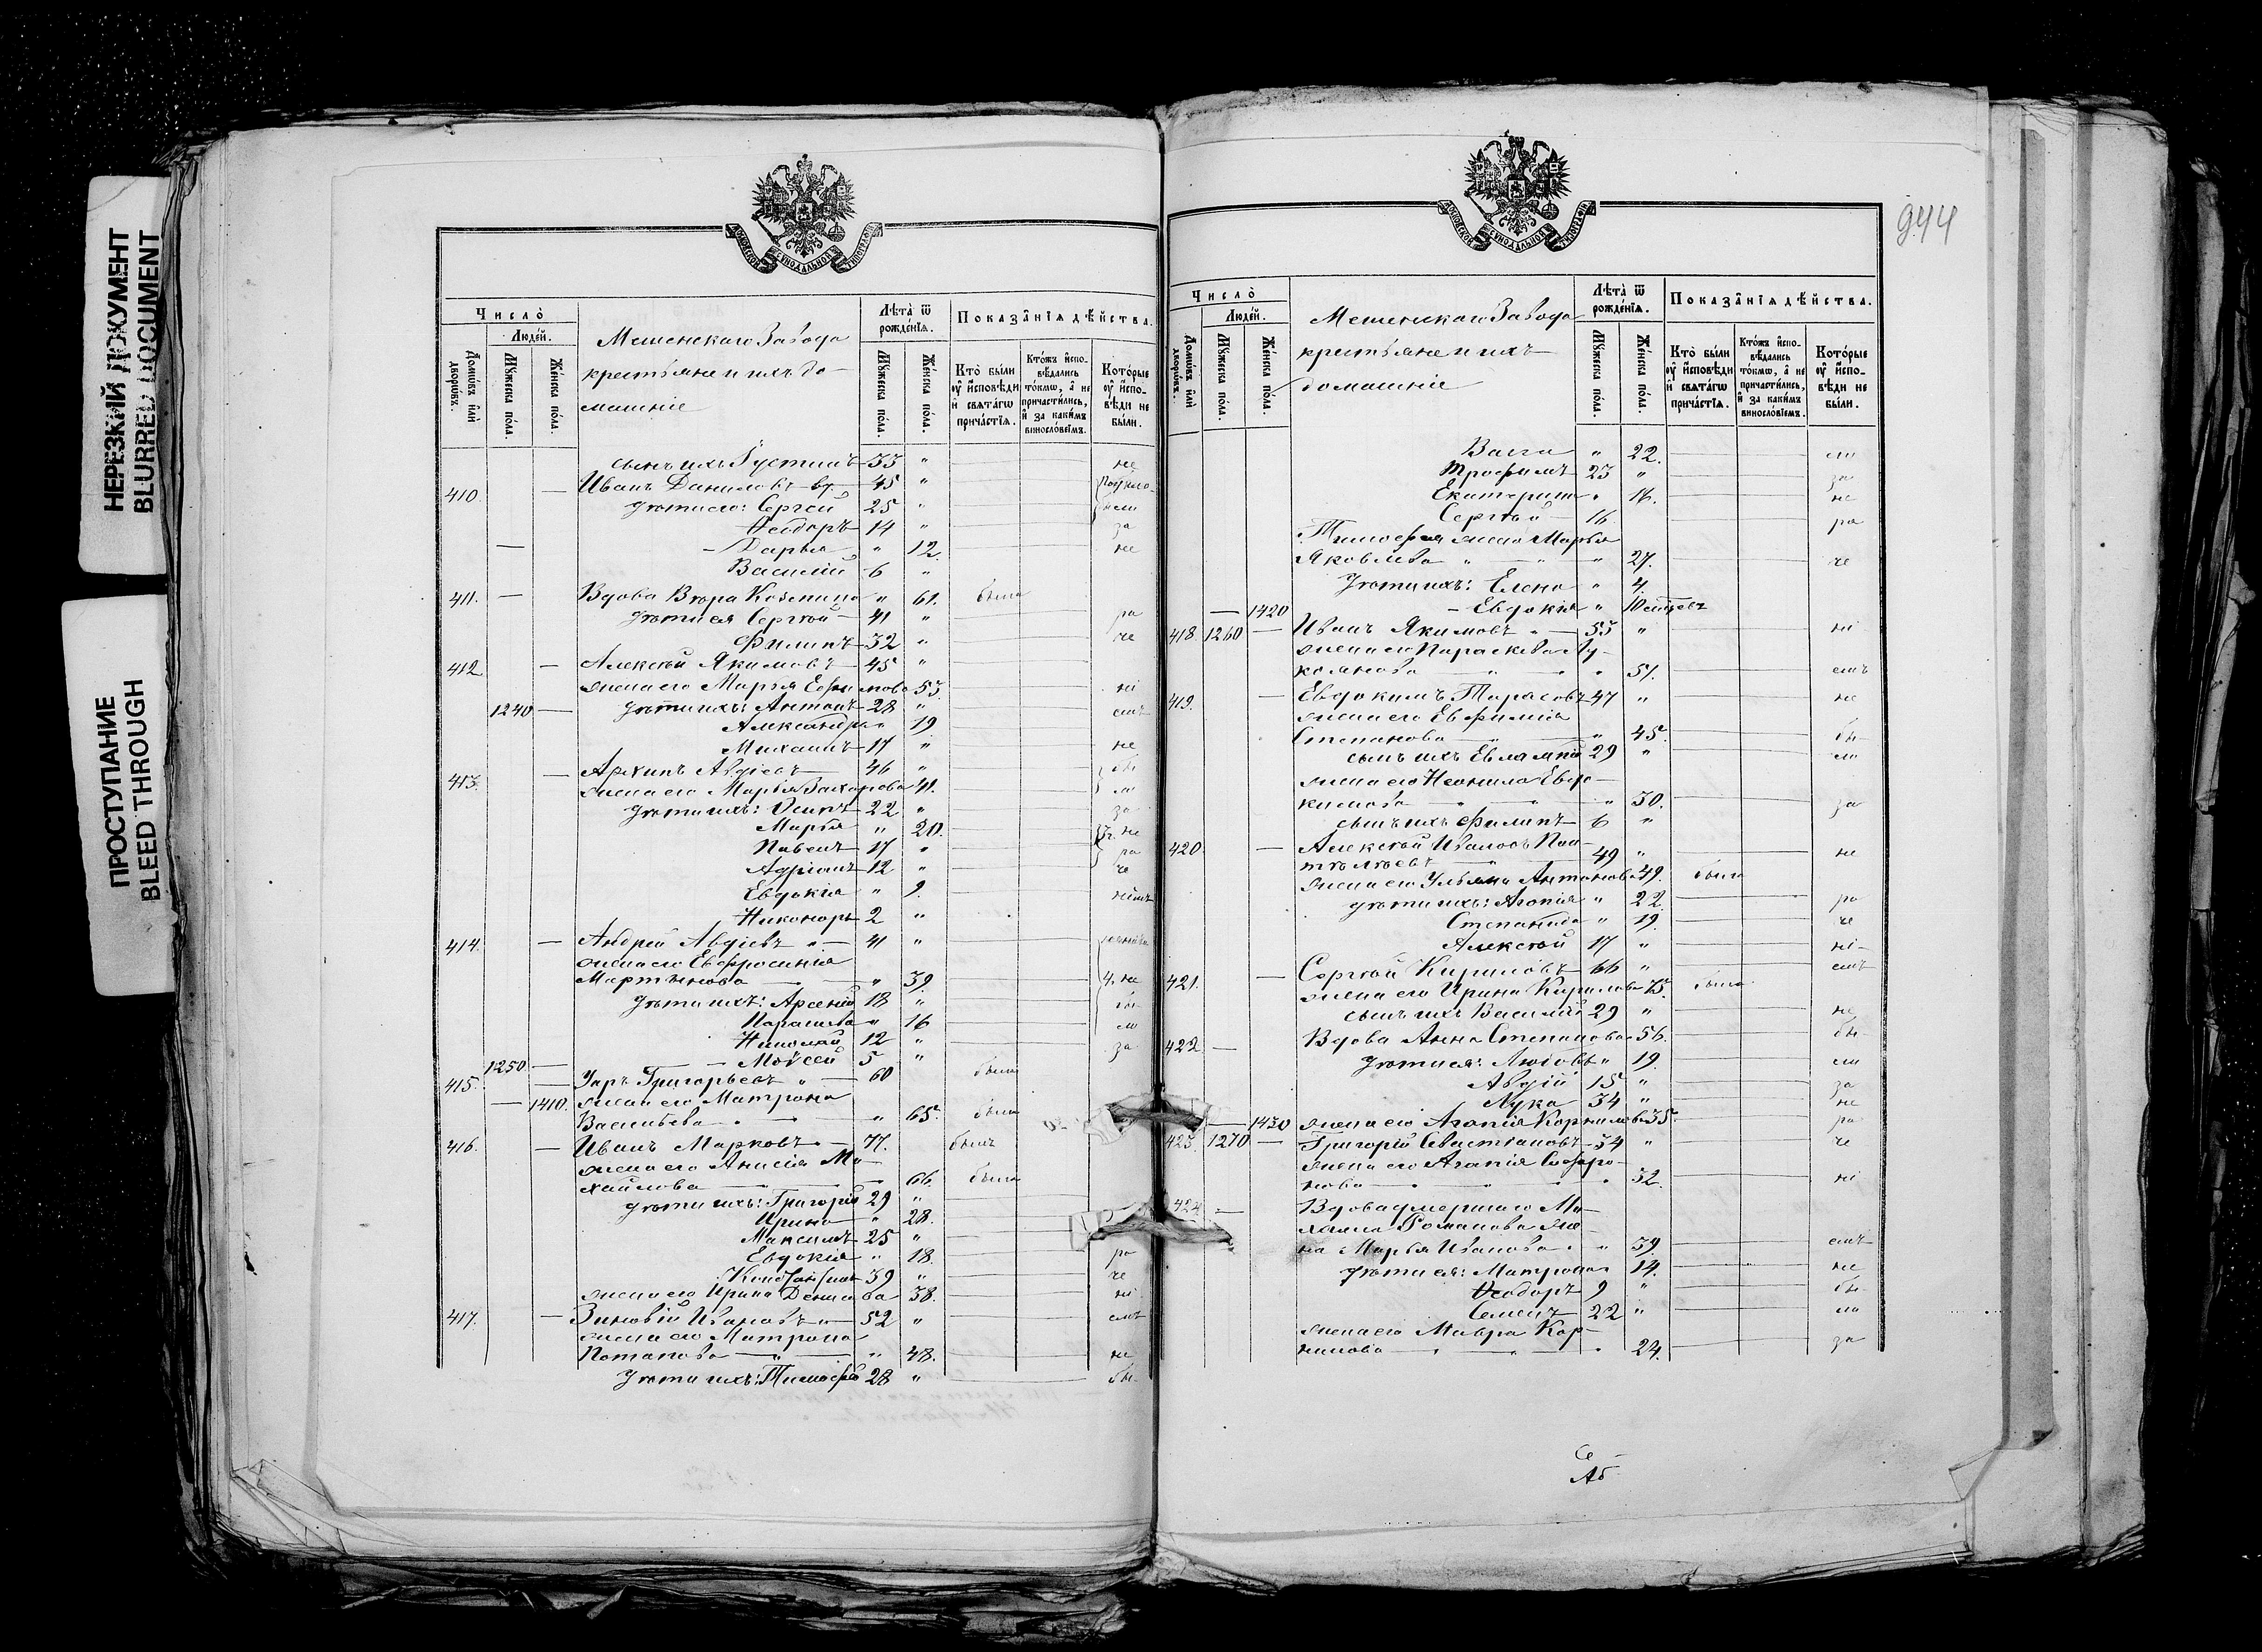 НЕРЕЗКИЙ ДОКУМЕНТ
BLURRED DOCUMENT
ПРОСТУПАНИЕ
BLEED THROUGH
МОСКОВСКОЙ СѴНОДАЛЬНОЙ ТИПОГРАФІИ
Число̀
Людей.
Домѡвъ или дворѡвъ.
Мꙋжеска пола.
Женска пола.
Мешенскаго Завода
крестьяне и ихъ до-
машніе
Лѣта ѿ рожденїѧ.
Мꙋжеска пола.
Женска пола.
Показанїѧ дѣйства.
Кто были ᲂу҆ исповѣди и свѧтагѡ причастїѧ.
Ктожъ исповѣдались токмѡ, а не причастились, и за какимъ винословїемъ.
Которые ᲂу҆ исповѣди не были.
сынъ ихъ Іустинъ 33 " не
410. Иванъ Даниловъ вд. 45 "
дѣти его: Сергей 25 " были
Ѳеодоръ 14 " за
Дарья " 12. не
Василій 6 "
411. Вдова Вѣра Козмина " 61. была
дѣти ея Сергѣй 41 " ра
Филипъ 32 " че
412 Алексѣй Якимовъ 45 "
жена его Марья Ефимова 53 ні
1240 дѣти ихъ: Антонъ 28 " емъ
Александра " 19
Михаилъ 17 " не
413. Архипъ Авдіевъ 46 " бы
жена его Марья Захарова 41. ли
дѣти ихъ: Осипъ 22 " за
Марья " 20. не
Павелъ 17 " ра
Адріанъ 12 " че
Евдокія " 9. ніемъ
Никоноръ 2 "
414. Андрей Авдіевъ 41 "
жена его Евфросинія
Мартынова " 39. не
дѣти ихъ: Арсеній 18 " бы
Парасковья " 16 ли
Николай 12 " за
1250 Моѵсей 5 "
415. Уаръ Григорьевъ " 60 былъ
1410. жена его Матрона
Васильева " 65. была
416. Иванъ Марковъ 77. былъ
жена его Анисія Ми-
хайлова 66. была
дѣти ихъ: Григорій 29 "
Ирина " 28.
Максимъ 25 "
Евдокія " 18. ра
Константинъ 39 " че
жена его Ирина Денисова 38. ні
417. Зиновій Ивановъ 52 " емъ
жена его Матрона
Потапова " 48. не
дѣти ихъ: Тимофей 28 " бы
944
МОСКОВСКОЙ СѴНОДАЛЬНОЙ ТИПОГРАФІИ
Число̀
Людей.
Домѡвъ или дворѡвъ.
Мꙋжеска пола.
Женска пола.
Мешенскаго Завода
крестьяне и ихъ
домашніе
Лѣта ѿ рожденїѧ.
Мꙋжеска пола.
Женска пола.
Показанїѧ дѣйства.
Кто были ᲂу҆ исповѣди и свѧтагѡ причастїѧ.
Ктожъ исповѣдались токмѡ, а не причастились, и за какимъ винословїемъ.
Которые ᲂу҆ исповѣди не были.
Васса " 22. ли
Трофимъ 23 " за
Екатерина " 16. не
Сергѣй 16 ра
Тимофея жена Марья
Яковлева " " 27. че
дѣти ихъ: Елена " 4.
1420 Евдокія " 10 мѣсяцевъ
418. 1260 Иванъ Якимовъ " 55 " ні
жена его Параскева Лу-
кьянова " 51. емъ
419. Евдокимъ Тарасовъ 47 " не
жена его Евфимія
Степанова " 45. бы
сынъ ихъ Евлампій 29 " ли
жена его Неонила Евдо-
кимова " " 30. за
сынъ ихъ Филипъ 6 "
420 Алексѣй Ивановъ Пан-
телѣевъ 49 " не
жена его Ульяна Антонова 49. была
дѣти ихъ: Агапія " 22. ра
Степанида " 19. че
Алексѣй 17 " ні-
421. Сергѣй Кириловъ 66 " емъ
жена его Ирина Кирилова 75. была
сынъ ихъ Василій 29 " не
422 Вдова Анна Степанова 56. бы-
дѣти ея: Любовь " 19. ли
Авдій 15 " за
Лука 34 " не
1430 жена его Агапія Корнилова 35. ра
423. 1270 Григорій Севастіановъ 34 " че
жена его Агапія Софро-
нова " 32. ні
424 Вдова умершаго Ми-
хаила Романова же-
на Марья Иванова " 39. емъ
дѣти ея: Матрона " 14. не
Ѳеодоръ 9 " бы-
Семенъ 22 " ли
жена его Мавра Кор-
нилова " 24. за
Се-
Аб